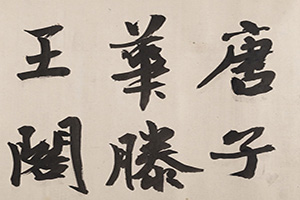 唐子
華滕
王閣